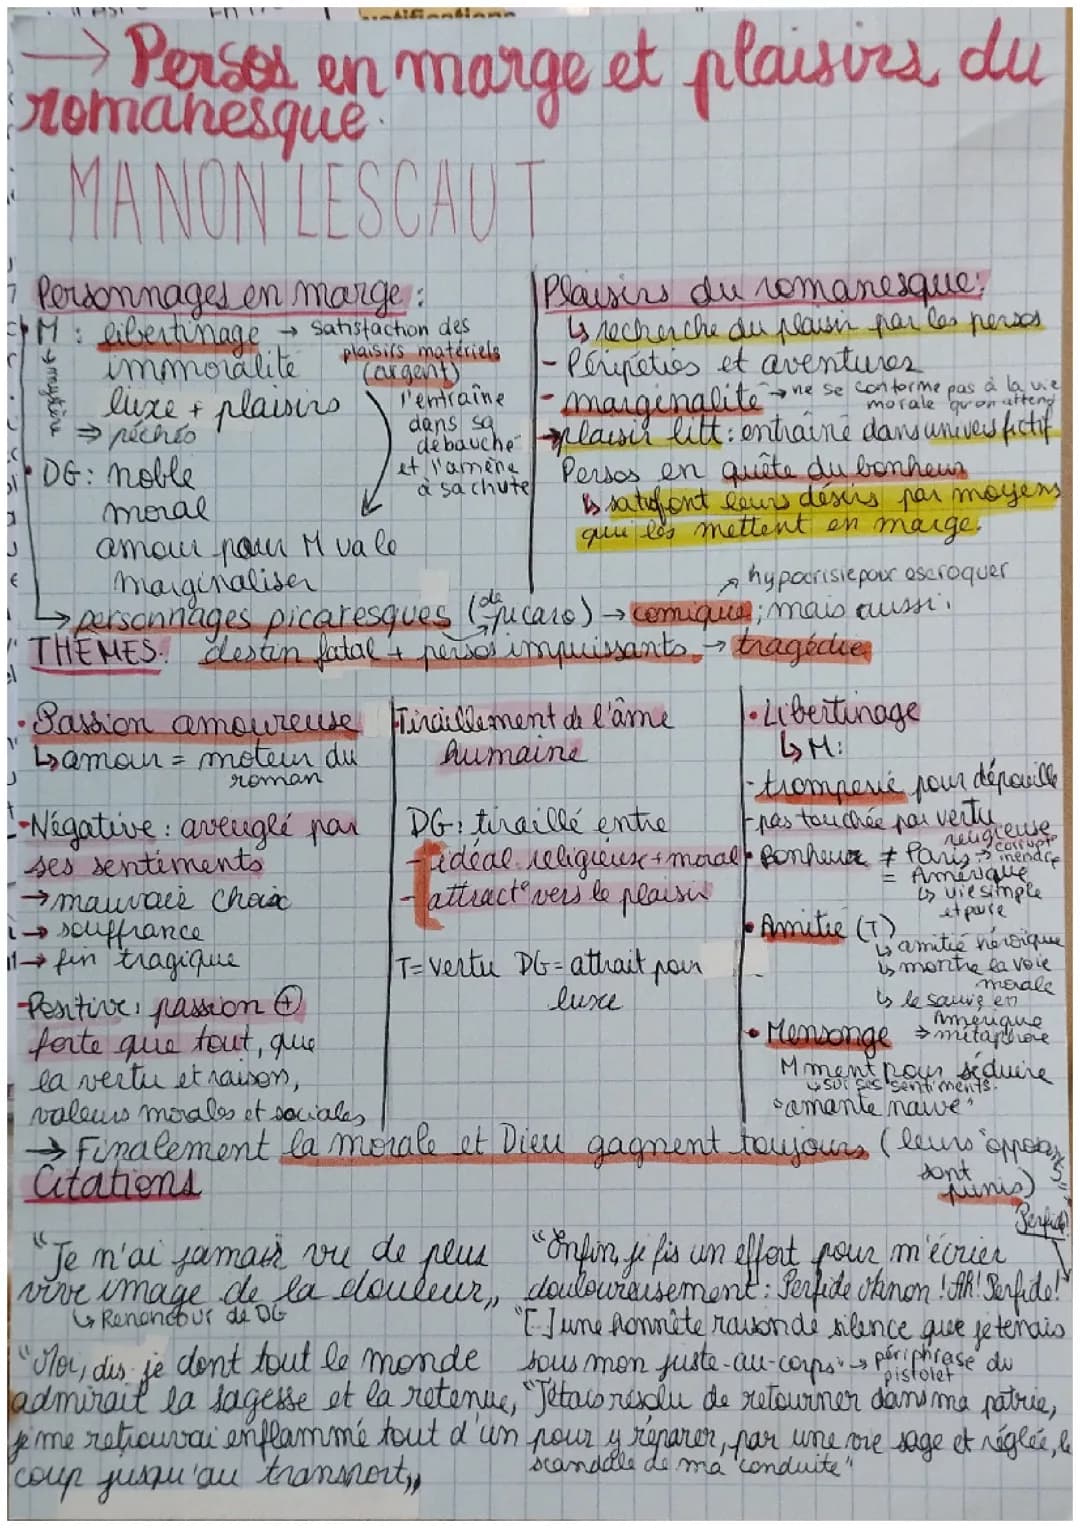 → Persos en marge et plaisirs du
romanesque.
MANON LESCAUT
Personnages en marge :
M : libertinage → satisfaction des
plaisirs matériels
(argent)
immoralité
luxe + plaisirs
⇒ péchés
→ mystère
l'entraîne
dans sa
débauche
et l'amène
à sa chute
DG : noble
moral
amour pour M va le
marginaliser
↳ personnages picaresques (de picaro) → comique ; mais aussi :
↗ hypocrisie pour escroquer
Plaisirs du romanesque :
↳ recherche du plaisir par les persos
- Péripéties et aventures
- marginalité → ne se conforme pas à la vie
morale qu'on attend
→ plaisir litt : entraîné dans univers fictif
Persos en quête du bonheur
↳ satisfont leurs désirs par moyens
qui les mettent en marge.
THÈMES : destin fatal + persos impuissants → tragédie
• Passion amoureuse
↳ amour = moteur du
roman
- Négative : aveuglé par
ses sentiments
→ mauvais choix
→ souffrance
→ fin tragique
- Positive : passion ⊕
forte que tout, que
la vertu et raison,
valeurs morales et sociales
• Tiraillement de l'âme
humaine
DG : tiraillé entre
- idéal religieux + moral
- attract° vers le plaisir
T = vertu DG = attrait pour
luxe
• Libertinage
↳ M :
- tromperie pour dépouiller
- pas touchée par vertu
religieuse
• Bonheur ≠ Paris →
= Amérique
↳ vie simple
et pure
• Amitié (T)
↳ amitié héroïque
↳ montre la voie
morale
↳ le sauve en
Amérique
⇒ métaphore
• Mensonge
M ment pour séduire
↳ sur ses sentiments.
"amante naïve"
→ Finalement la morale et Dieu gagnent toujours (leurs opposants
sont
punis)
Citations
Perfide!
"Je n'ai jamais vu de plus
vive image de la douleur"
↳ Renoncour de DG
"Moi, dis-je dont tout le monde
admirait la sagesse et la retenue,
je me retrouvai enflammé tout d'un
coup jusqu'au transport"
"Enfin, je fis un effort pour m'écrier
douloureusement : Perfide Manon ! Ah ! Perfide !
"[-] une honnête raison de silence que je tenais
sous mon juste-au-corps" → périphrase du
pistolet
"J'étais résolu de retourner dans ma patrie,
pour y réparer, par une vie sage et réglée, le
scandale de ma conduite"